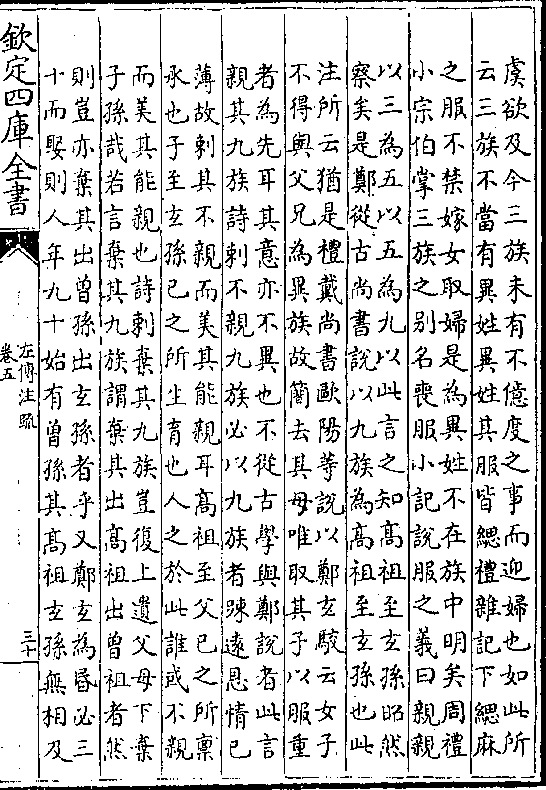 虞欲及今三族未有不億度之事而迎婦也如此所
云三族不當有異姓異姓其服皆緦禮雜記下緦麻
之服不禁嫁女取婦是為異姓不在族中明矣周禮
小宗伯掌三族之别名喪服小記說服之義曰親親
以三為五以五為九以此言之知髙祖至𤣥孫昭然
察矣是鄭從古尚書說以九族為髙祖至𤣥孫也此
注所云猶是禮戴尚書歐陽等說以鄭𤣥駮云女子
不得與父兄為異族故簡去其母唯取其子以服重
者為先耳其意亦不異也不從古學與鄭說者此言
親其九族詩刺不親九族必以九族者踈遠恩情已
薄故刺其不親而美其能親耳髙祖至父已之所禀
承也子至𤣥孫已之所生育也人之於此誰或不親
而美其能親也詩刺棄其九族豈復上遺父母下棄
子孫哉若言棄其九族謂棄其出髙祖出曾祖者然
則豈亦棄其出曾孫出𤣥孫者乎又鄭𤣥為昏必三
十而娶則人年九十始有曾孫其髙祖𤣥孫無相及
欽定四庫全書
左傳注疏
卷五
三十